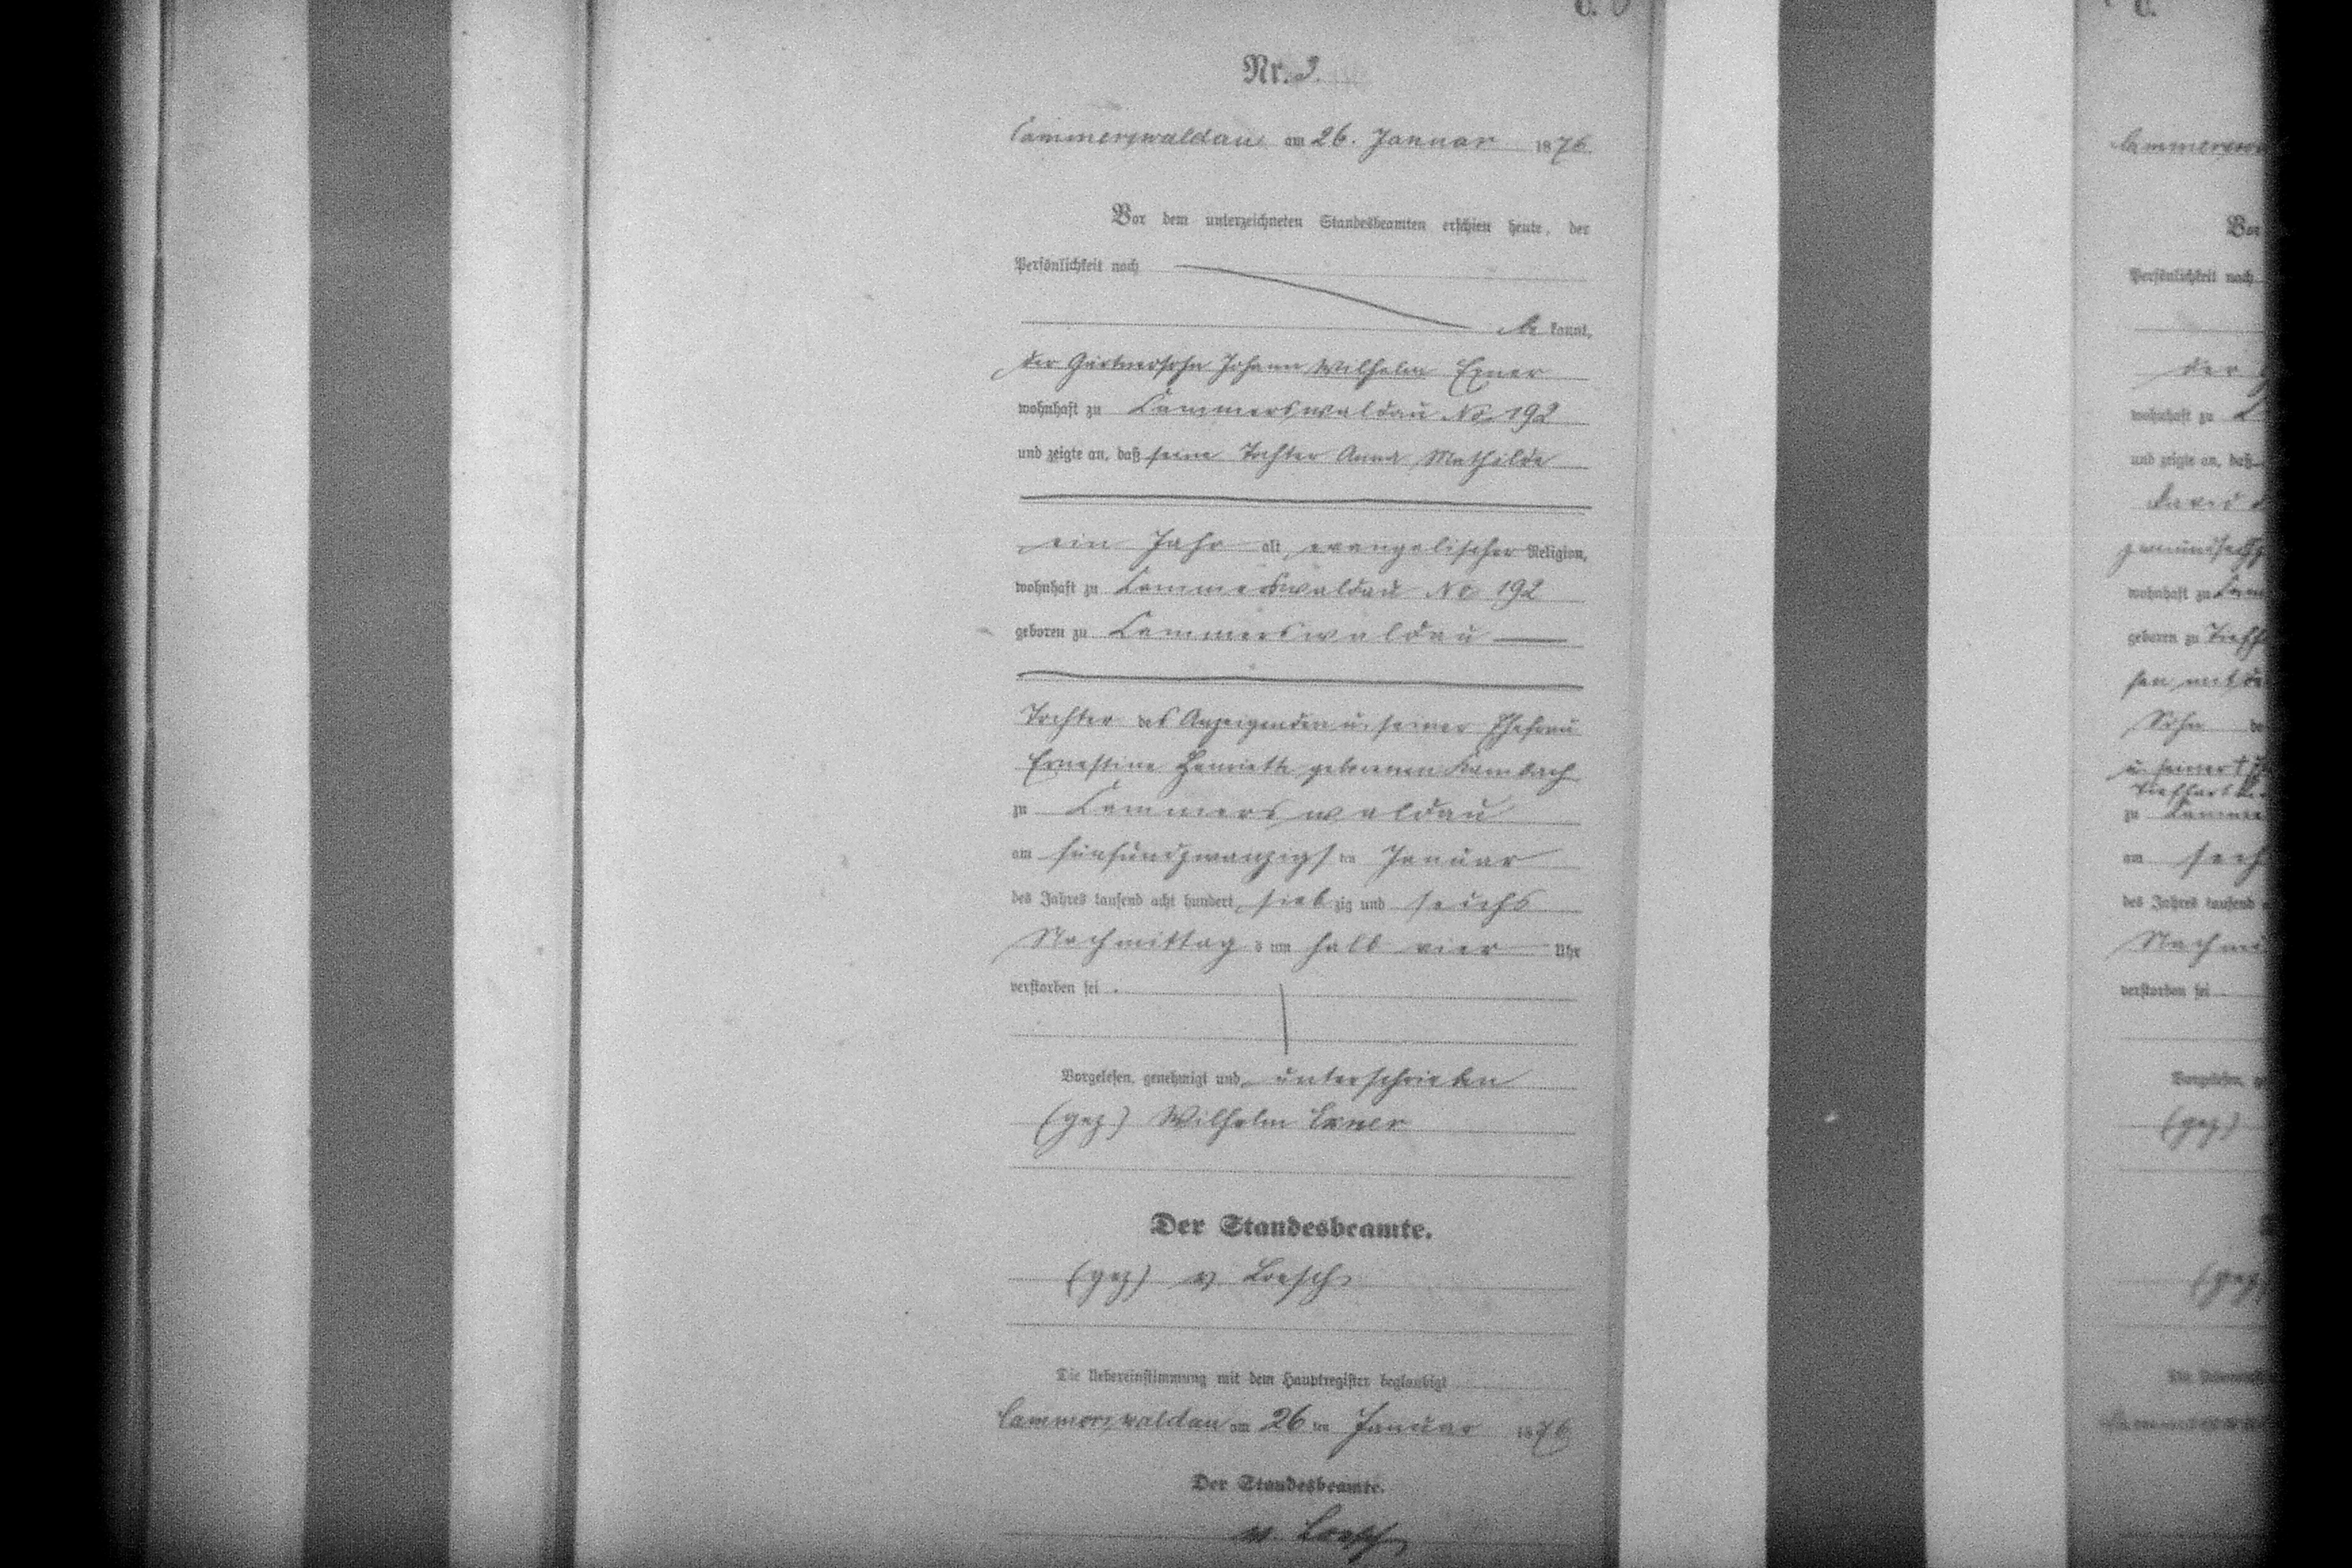 Nr. 3.
Cammerswaldau am 26. Januar 1876.
Vor dem unterzeichneten Standesbeamten erschien heute, der
Persönlichkeit nach
be kannt,
der Gärtnersohn Johann Wilhelm Exner
wohnhaft zu Cammerswaldau No 192
und zeigte an, daß seine Tochter Anna Mathilde
ein Jahr alt, evangelischer Religion,
wohnhaft zu Cammerswaldau No 192
geboren zu Cammerswaldau
Tochter des Anzeigenden u. seiner Ehefrau
Ernestine Henriette geborenen Kambach
zu Cammerswaldau
am fünfundzwanzigsten Januar
des Jahres tausend acht hundert siebzig und sechs
Nachmittags um halb vier Uhr
verstorben sei.
Vorgelesen, genehmigt und unterschrieben
(gez) Wilhelm Exner
Der Standesbeamte.
(gez) v Loesch
Die Uebereinstimmung mit dem Hauptregister beglaubigt
Cammerswaldau am 26ten Januar 1876
Der Standesbeamte.
v. Loesch
Vor
Persönlichkeit nach
der
wohnhaft zu
und zeigte an, daß
David
wohnhaft zu
geboren zu
Sohn
zu
am
des Jahres tausend
verstorben sei
(gez)
(gez)